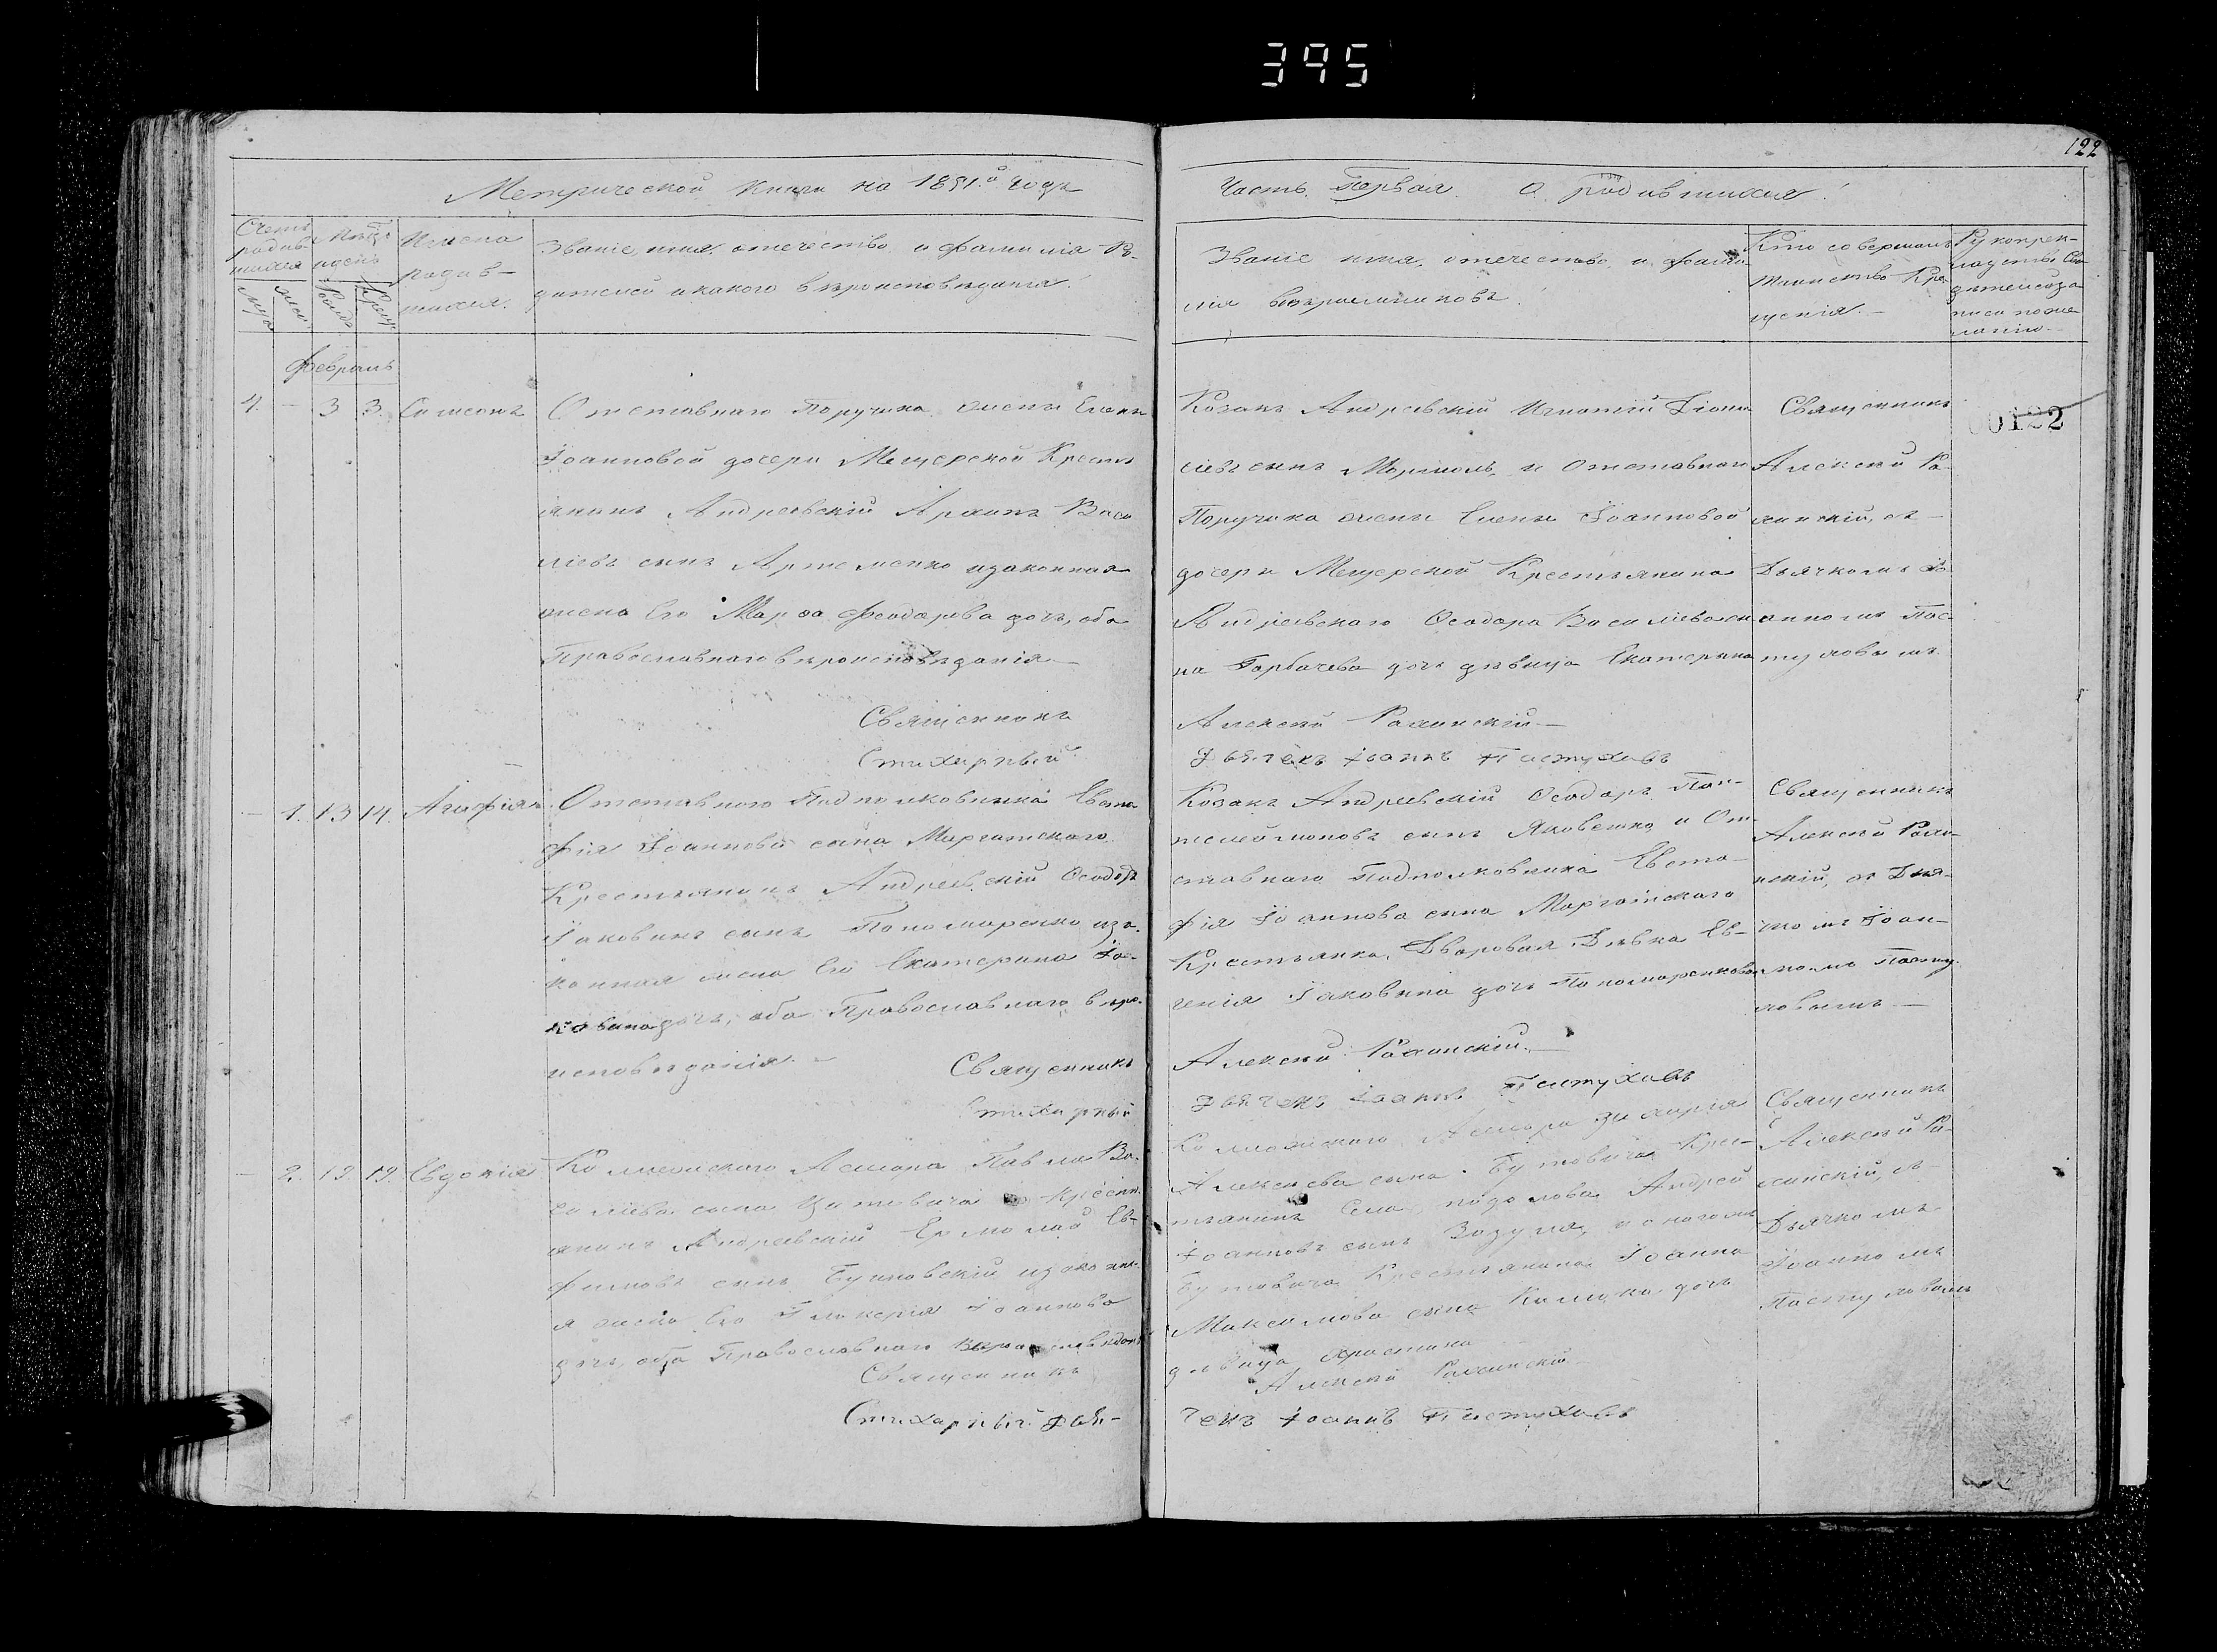 395
122
Метрической книги на 1851.й годъ
Часть Первая. О родившихся.
Счетъ родив-шихся
муж
жен
Мѣсяцъ и день
Рожд
Крещ
Имена
родив-
шихся.
Званіе, имя, отечество и фамилія Ро-
дителей и какого вѣроисповѣданія.
Званіе имя, отечество и фами-
лія воспріемниковъ.
Кто совершалъ
таинство Кре-
щенія.
Рукоприк-
ладство сви-
дѣтелей о за
писи по же
ланію.
Февраль
4. — 3 3. Самсонъ
Отставнаго Поручика жены Елены
Іоанновой дочери Мещерской Кресть
янинъ Андреевскій Архипъ Васи
ліевъ сынъ Артеменко и законная
жена Его Марѳа Феодорова дочь, оба
Православнаго вѣроисповѣданія
Священникъ
Стихарный
Козакъ Андреевскій Игнатій Діони
сіевъ сынъ и Отставнаго
Поручика жены Елены Іоанновой
дочери Мещерской Крестьянина
Андреевскаго Ѳеодора Василіева сы
на Горбачева дочь дѣвица Екатерина
Алексей
Дьячекъ Іоаннъ Пастуховъ
Священникъ
Алексей
съ
Дьячкомъ Іо
анномъ Пас
туховымъ
00122
— 1. 13 14. Агафія
Отставного Подполковника Евста
фія Іоаннова сына
Крестьянинъ Андреевскій Ѳеодоръ
Іаковинъ сынъ Пономаренко и за-
конная жена Его Екатерина Іа-
ковина дочь, оба Православнаго вѣро-
исповѣданія.
Священникъ
Стихарный
Козакъ Андреевскій Ѳеодоръ Пан-
телеймоновъ сынъ Яковенко и От-
ставнаго Подполковника Евста-
фія Іоаннова сына
Крестьянка, Дворовая Дѣвка Ев-
генія Іаковина дочь Пономаренкова
Алексей
Дьячекъ Іоаннъ Пастуховъ
Священникъ
Алексей
съ Дья-
чкомъ Іоан-
номъ Пасту-
ховымъ
— 2. 19 19. Евдокія
Коллежскаго Асесора Павла Ва-
силіева сына Крестья
янинъ Андреевскій Ермолай Ев-
фимовъ сынъ и законна
я жена Его Гликерія Іоаннова
дочь, оба Православнаго
Священникъ
Стихарный Дья-
Коллежскаго Асесора Захарія
Алексеева сына Бутовича Крес-
тьянинъ Села Андрей
Іоанновъ сынъ и оного жъ
Бутовича Крестьянина Іоанна
Максимова сына дочь
дѣвица Христина
Алексей
чекъ Іоаннъ Пастуховъ
Священникъ
Алексей
съ
Дьячкомъ
Іоанномъ
Пастуховымъ